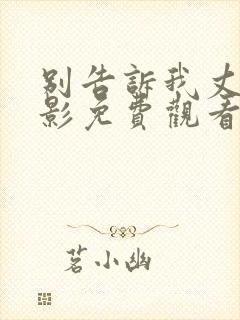 别告訴我丈
影免費觀看
茗小幽